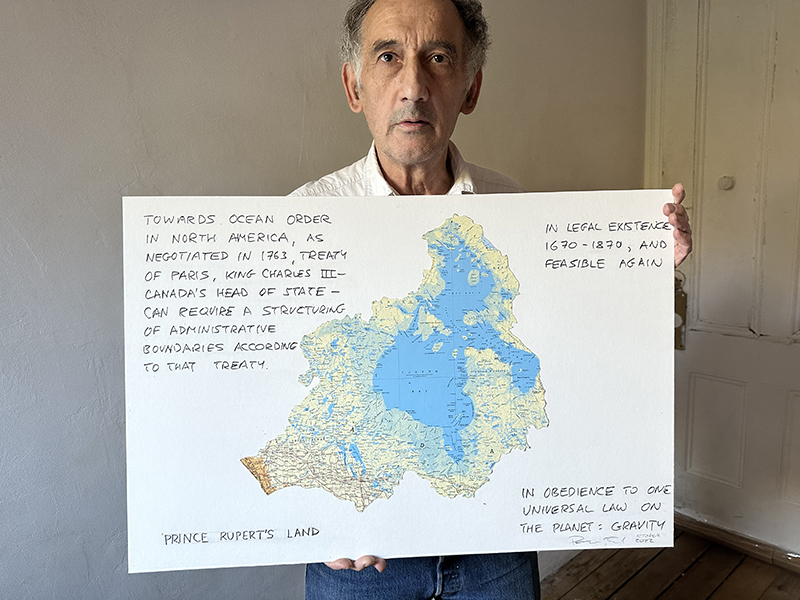 TOWARDS OCEAN ORDER
IN NORTH AMERICA, AS
NEGOTIATED IN 1763, TREATY
OF PARIS, KING CHARLES III–
CANADA'S HEAD OF STATE –
CAN REQUIRE A STRUCTURING
OF ADMINISTRATIVE
BOUNDARIES ACCORDING
TO THAT TREATY.
IN LEGAL EXISTENCE
1670-1870, AND
FEASIBLE AGAIN
PRINCE RUPERT'S LAND
IN OBEDIENCE TO ONE
UNIVERSAL LAW ON
THE PLANET: GRAVITY